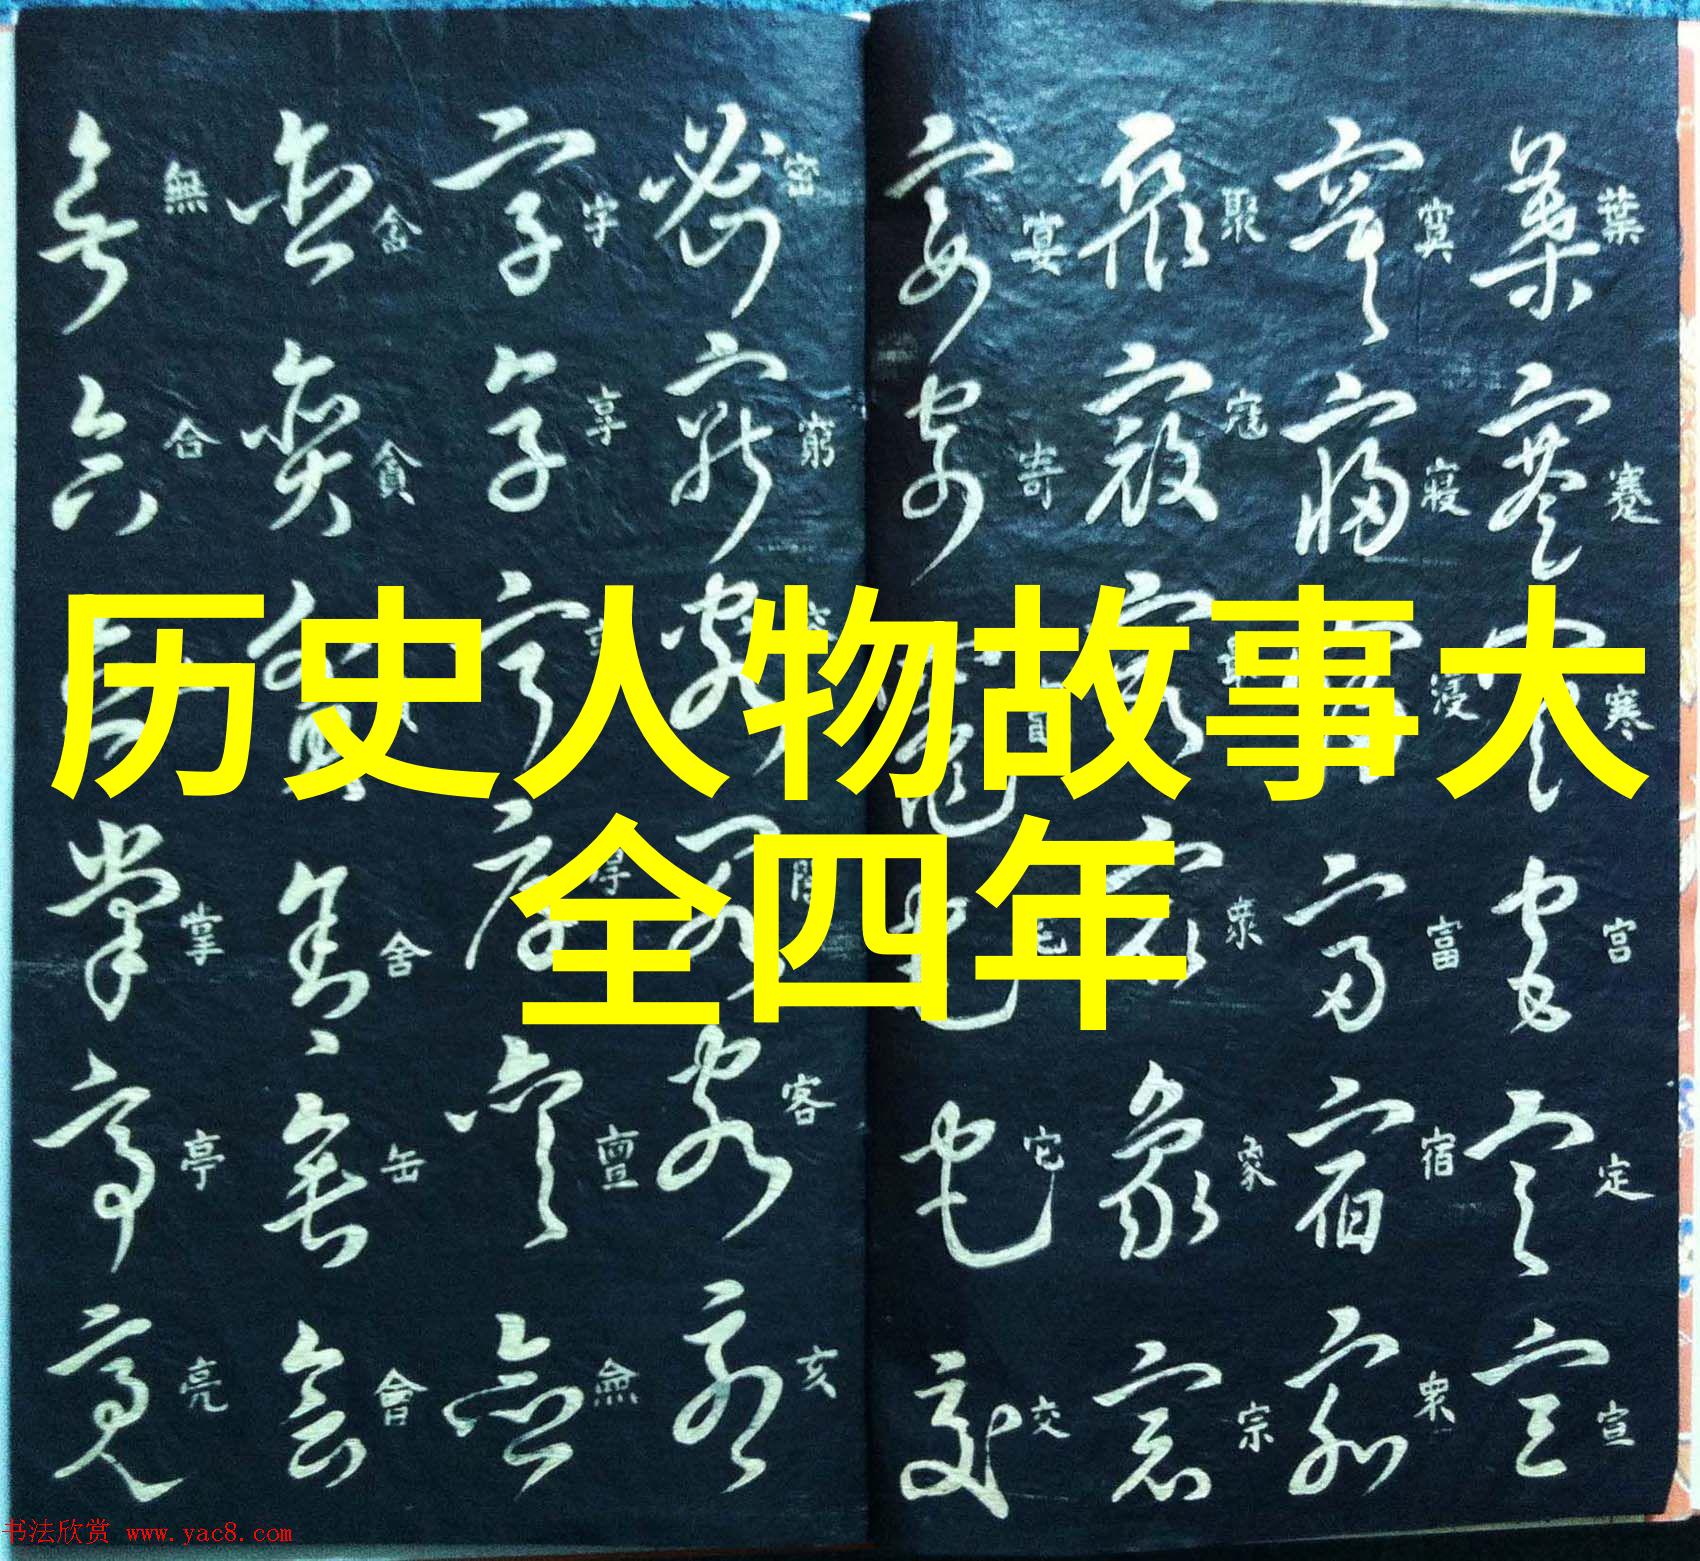 历史人物故事大
全四年
葉 蹇 寒 宫 定 宣
寞 寢 浸 富 宿
聚 寇 最 衆 家 宗
宴 寄 它 交
密 窮 客 亥
字 享 厚 亶 僉
貪 舍 缶 會
無 合 掌 亭 亮
书法欣赏 www.yac8.com